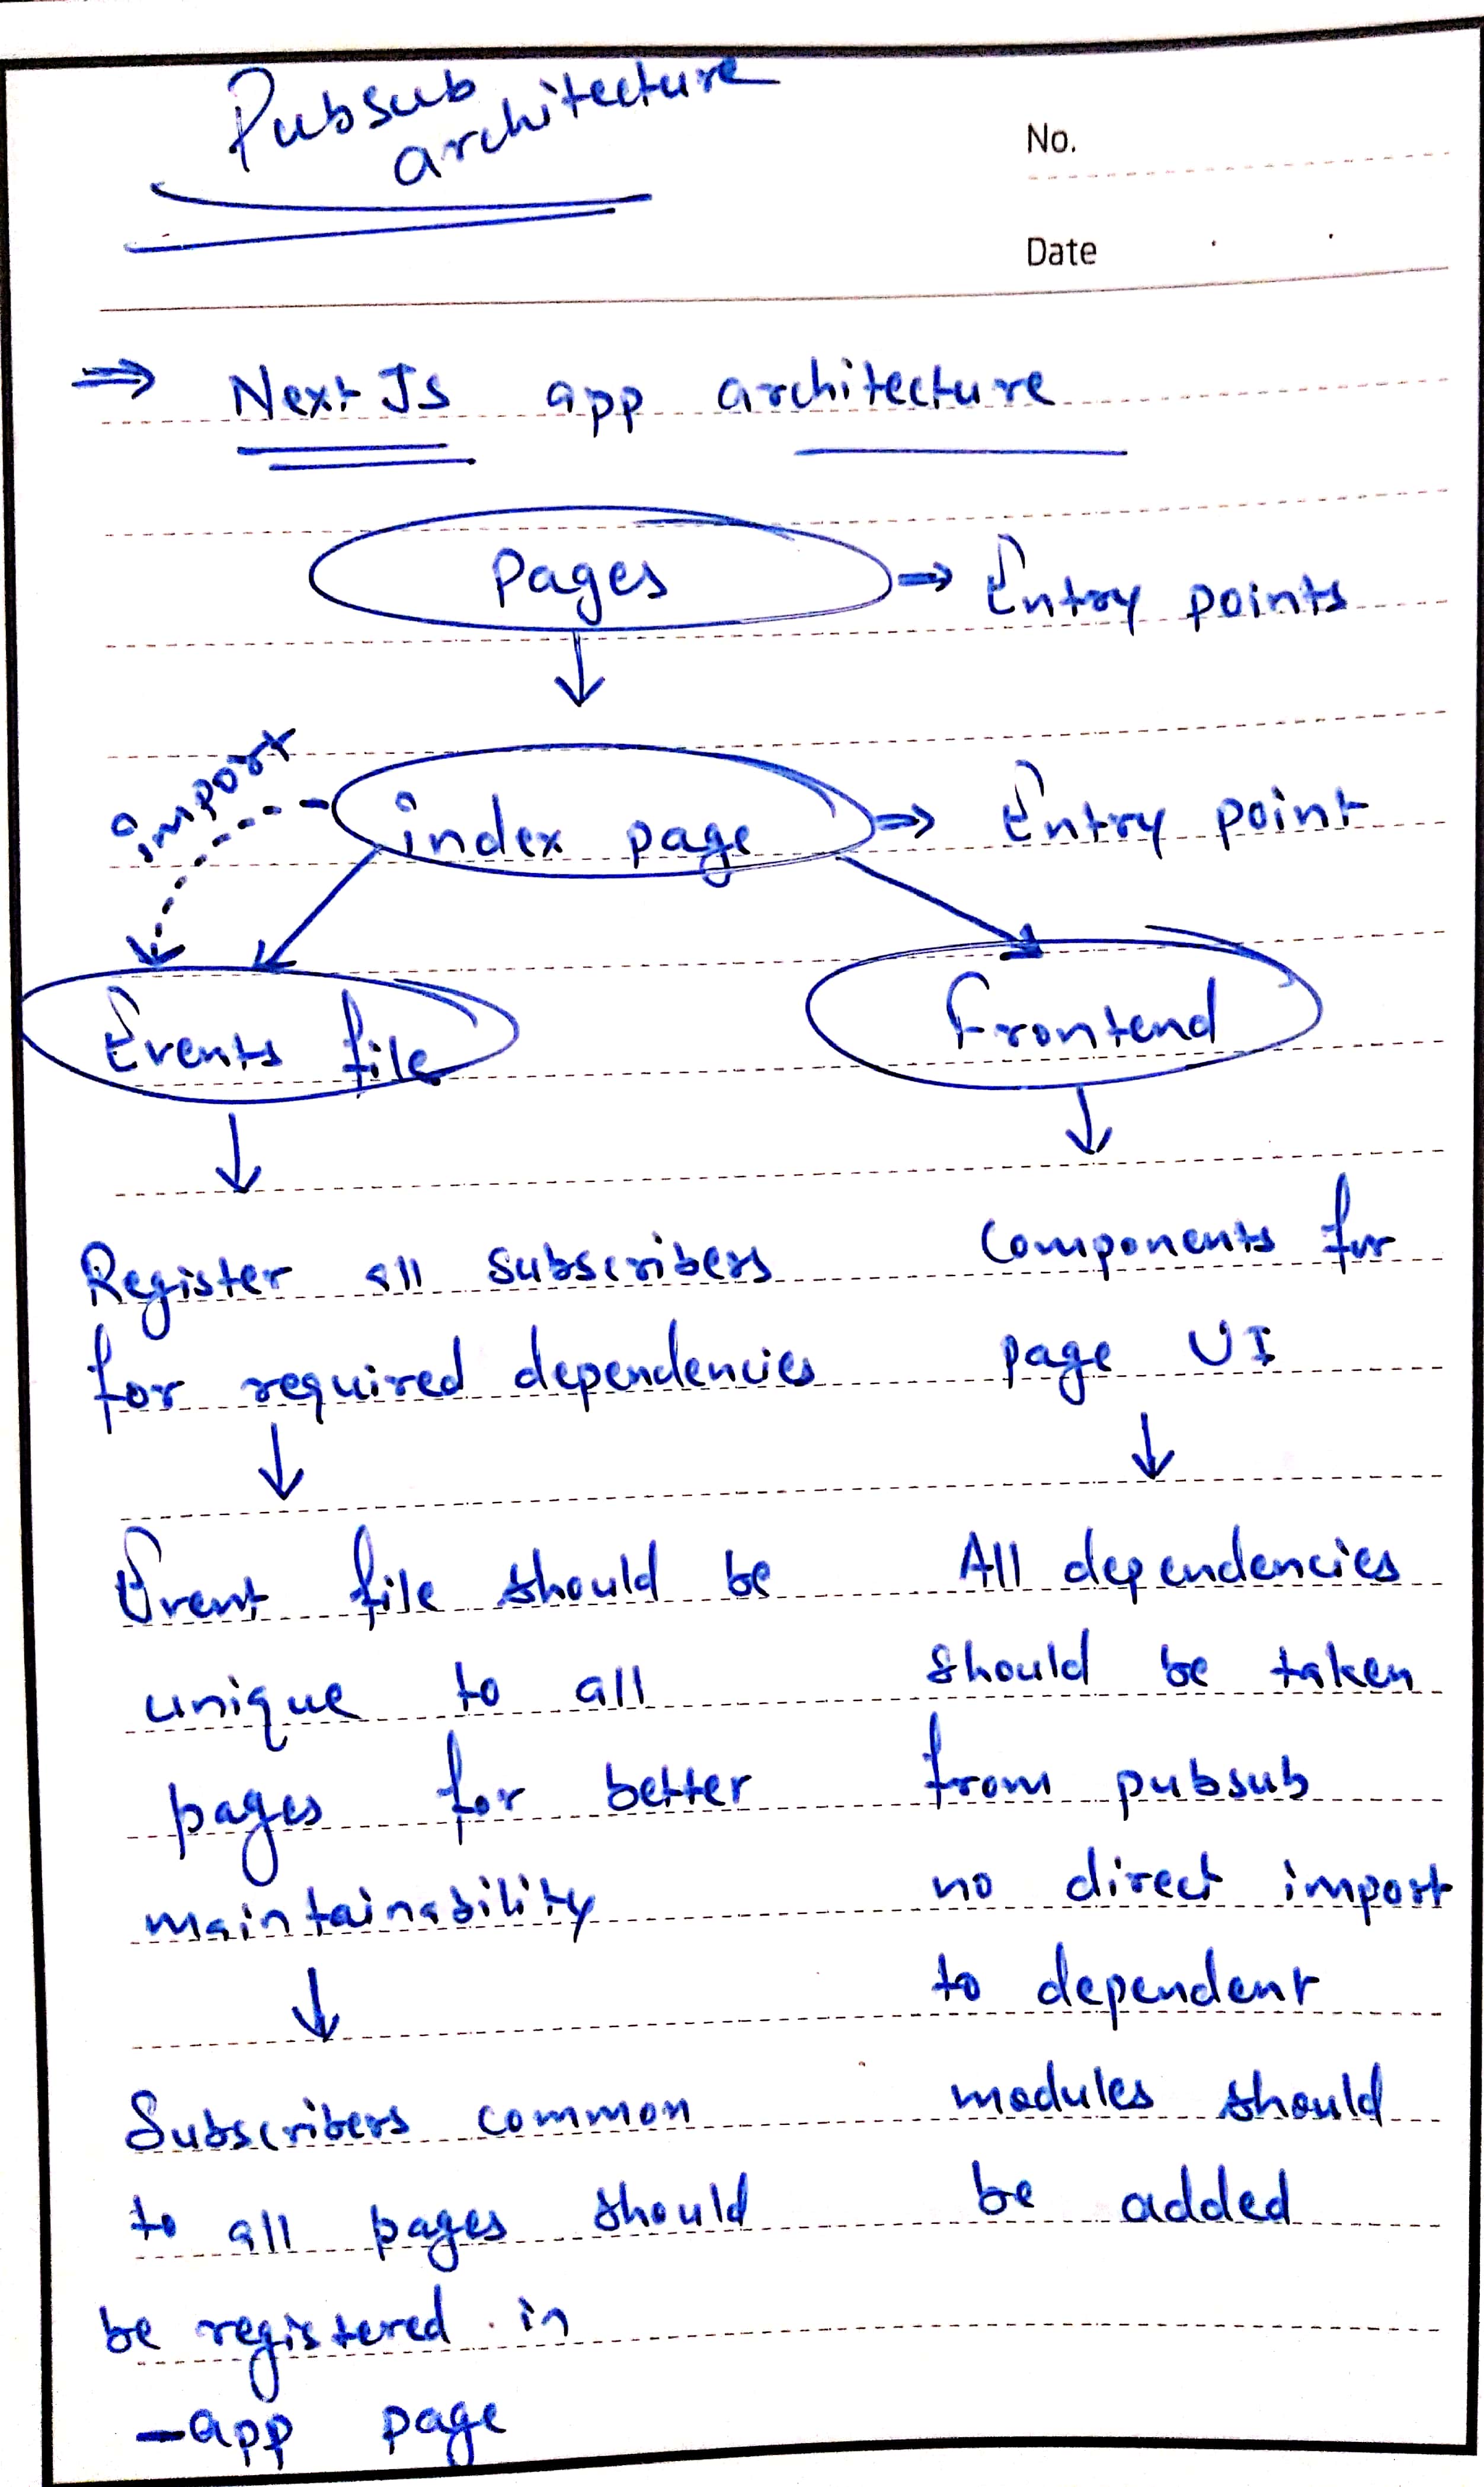 Pubsub
architecture
No.
Date
⇒ Next JS app architecture
Pages → Entry points
import
index page ⇒ Entry point
Events file
Frontend
Register all subscribers
for required dependencies
Event file should be
unique to all
pages for better
maintainability
Subscribers common
to all pages should
be registered in
_app page
Components for
page UI
All dependencies
should be taken
from pubsub
no direct import
to dependent
modules should
be added